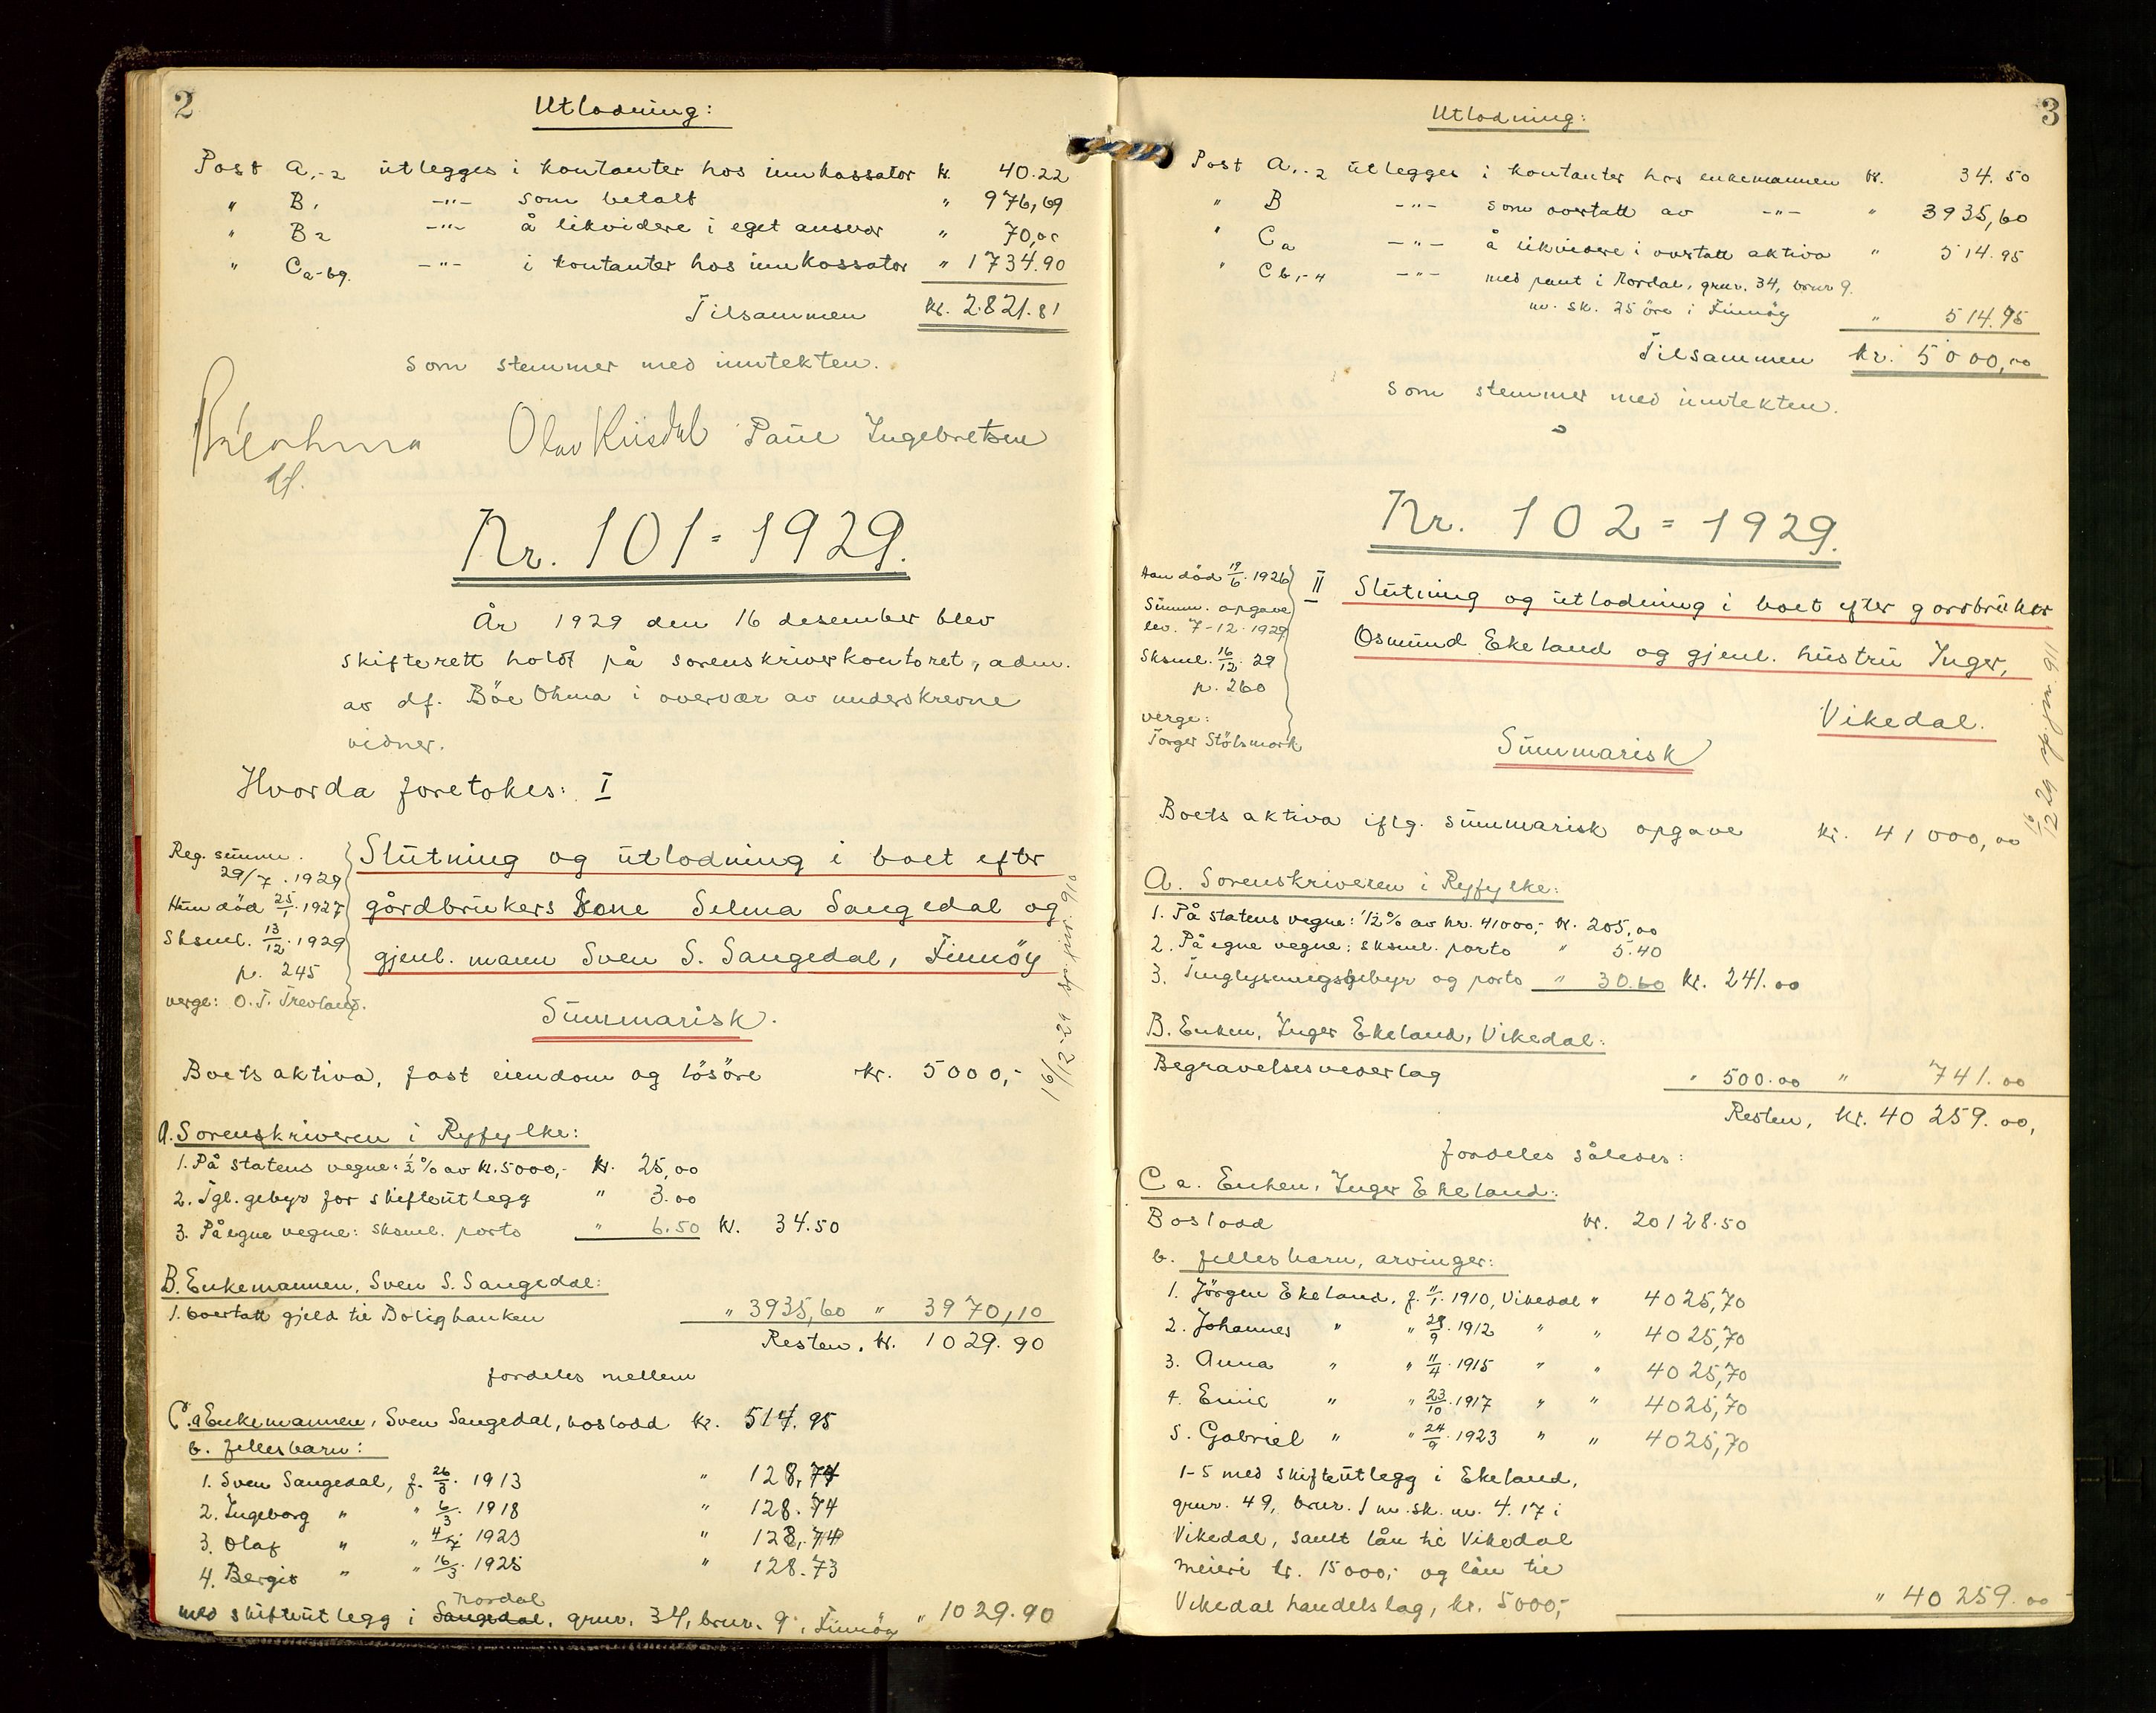 2
Utlodning:
Post A, -2 utlegges i kontanter hos innkassator kr. 40.22
" B, -"- som betalt " 976,69
" B2 -"- å likvidere i eget ansvar " 70,00
" Ca-bg. -"- i kontanter hos innkassator " 1734.90
Tilsammen kr. 2.821.81
som stemmer med inntekten.
Olav Paul Ingebretsen
Nr. 101 = 1929.
År 1929 den 16 desember blev
skifterett holdt på sorenskriverkontoret, adm.
av df. Böe Ohma i overvær av underskrevne
vidner.
Hvorda foretokes: I
Reg. summ.
29/7. 1929
Hun död 25/1. 1927
Sksml. 13/12. 1929
p. 245
verge: O. T. Trevland.
Slutning og utlodning i boet efter
gårdbrukers kone Selma Sangedal og
gjenl. mann Sven S. Sangedal, Finnöy
16/12-29 sp. jnr. 910
Summarisk.
Boets aktiva, fast eiendom og lösöre kr. 5000,-
A. Sorenskriveren i Ryfylke:
1. På statens vegne: ½% av kr. 5000,- kr. 25,00
2. Tgl. gebyr for skifteutlegg " 3.00
3. På egne vegne: sksml. porto " 6.50 kr. 34.50
B. Enkemannen, Sven S. Sangedal:
1. overtatt gjeld til Boligbanken " 3935,60 " 3970,10
Resten, kr. 1029.90
fordeles mellem
C. a Enkemannen, Sven Sangedal, boslodd kr. 514.95
b. fellesbarn:
1. Sven Sangedal, f. 26/8. 1913 " 128,74
2. Ingeborg " " 6/3. 1918 " 128.74
3. Olaf " " 4/7 1923 " 128,74
4. Bergit " " 16/3. 1925 " 128.73
Nordal
med skifteutlegg i Sangedal, gnr. 34, brnr. 9 i Finnöy " 1029.90
3
Utlodning:
Post A, -2 utlegges i kontanter hos enkemannen kr. 34.50
" B -"- som overtatt av -"- " 3935,60
" Ca -"- å likvidere i overtatt aktiva " 514.95
" Cb,-4 -"- med pant i Nordal, gnr. 34, brnr 9.
m. sk. 25 öre i Finnöy " 514.95
Tilsammen kr. 5000,00
som stemmer med inntekten.
Nr. 102 = 1929.
Han död 19/6. 1926
Summ. opgave
lev. 7-12-1929
Sksml. 16/12. 29
p. 260
verge:
Torger Stölsmark
II Slutning og utlodning i boet efter gardbruker
Osmund Ekeland og gjenl. hustru Inger,
Vikedal.
16/12 29 sp. jnr. 911
Summarisk
Boets aktiva iflg. summarisk opgave kr. 41000,00
A. Sorenskriveren i Ryfylke:
1. På statens vegne: ½% av kr. 41000,- kr. 205,00
2. På egne vegne: sksml. porto " 5.40
3. Tinglysningsgebyr og porto " 30.60 kr. 241.00
B. Enken, Inger Ekeland, Vikedal:
Begravelsesvederlag " 500.00 " 741.00
Resten, kr. 40 259.00,
fordeles således:
C a. Enken, Inger Ekeland:
Boslodd kr. 20128.50
b. fellesbarn, arvinger:
1. Jörgen Ekeland, f. 11/1. 1910, Vikedal " 4025,70
2. Johannes " " 28/9. 1912 " " 4025,70
3. Anna " " 11/4. 1915 " " 4025,70
4. Emil " " 23/10. 1917 " " 4025,70
5. Gabriel " " 24/9. 1923 " " 4025,70
1-5 med skifteutlegg i Ekeland,
gnr. 49, brnr. 1 m. sk. m. 4.17 i
Vikedal, samt lån til Vikedal
meieri kr. 15000,- og lån til
Vikedal handelslag, kr. 5000,- " 40259.00